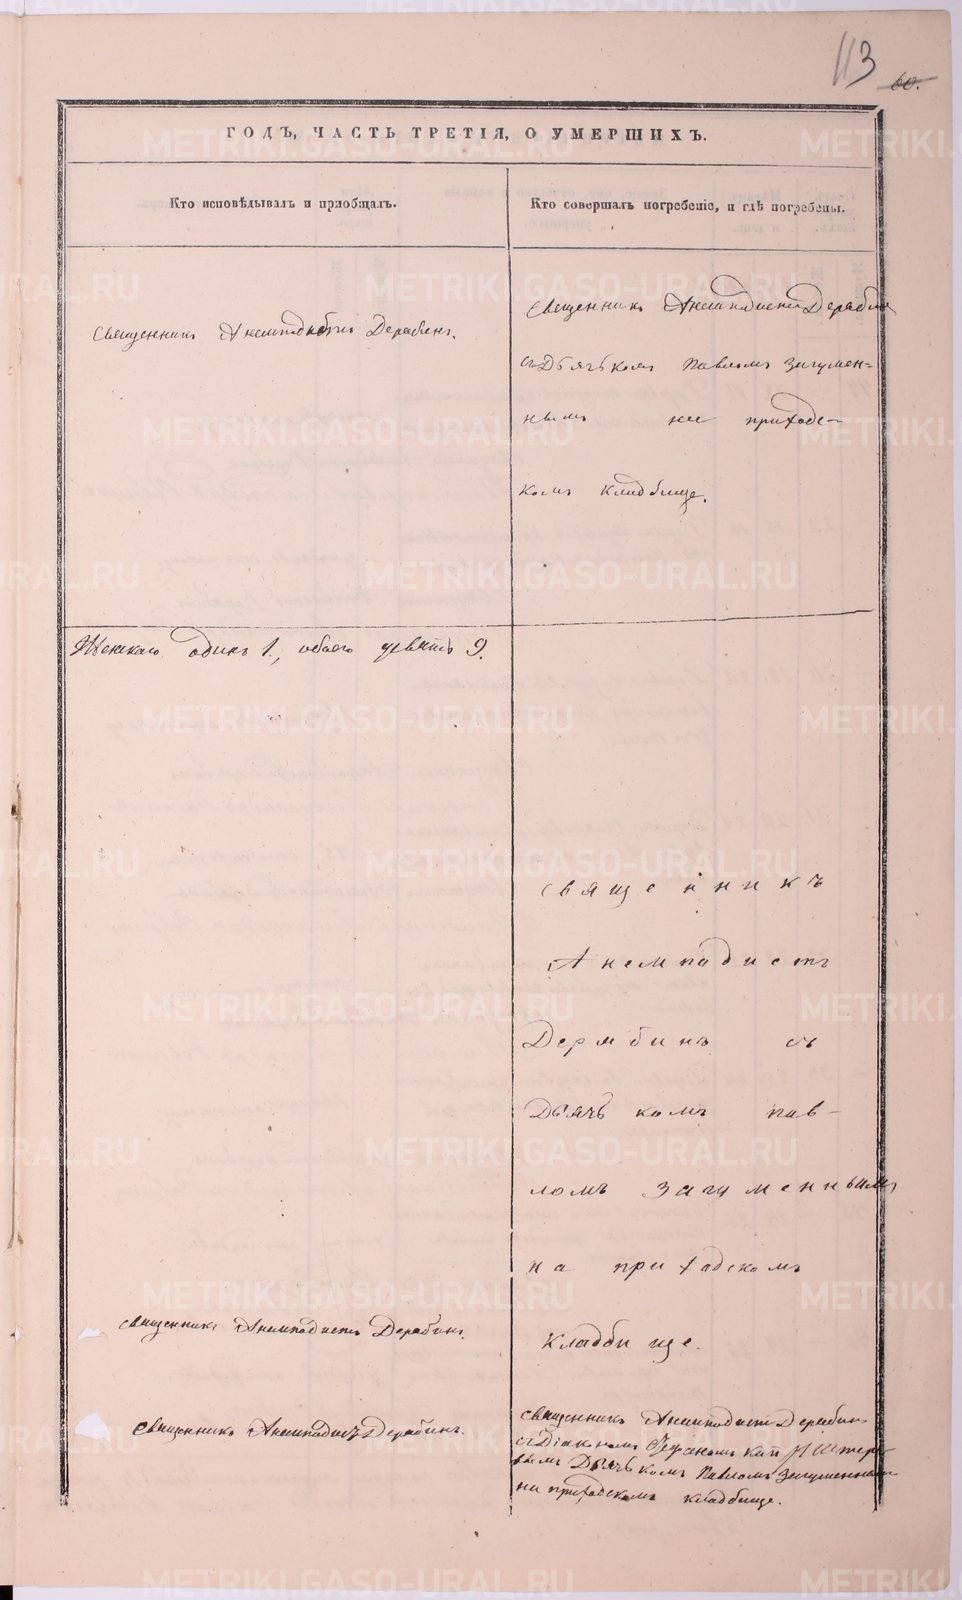 113
60.
ГОДЪ, ЧАСТЬ ТРЕТІЯ, О УМЕРШИХЪ.
Кто исповѣдывалъ и пріобщалъ.
Кто совершалъ погребеніе, и гдѣ погребены.
Священникъ Анемподистъ Дерябинъ.
Священникъ Анемподистъ Дерябинъ
съ Дьячькомъ Павломъ Загумен-
нымъ на приходс-
комъ кладбище.
Женскаго одинъ 1., обоего девять 9.
Священникъ
Анемподистъ
Дерябинъ съ
Дьячькомъ Пав-
ломъ Загуменнымъ
на приходскомъ
кладбище.
Священникъ Анемподистъ Дерябинъ.
Священникъ Анемподистъ Дерябинъ.
Священникъ Анемподистъ Дерябинъ
съ Діакономъ Стефаномъ
Дьячькомъ Павломъ Загуменнымъ
на приходскомъ кладбище.
METRIKI.GASO-URAL.RU